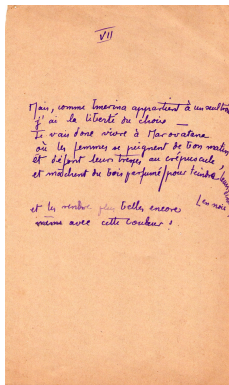 VII
Mais, comme Imerina appartient à un seul
j'ai la liberté du choix —
Je vais donc vivre à Marovatana
où les femmes se peignent de bon matin
et défont leurs tresses au crépuscule,
et mâchent du bois parfumé pour teindre leurs
en noir
et les rendre plus belles encore
même avec cette couleur !